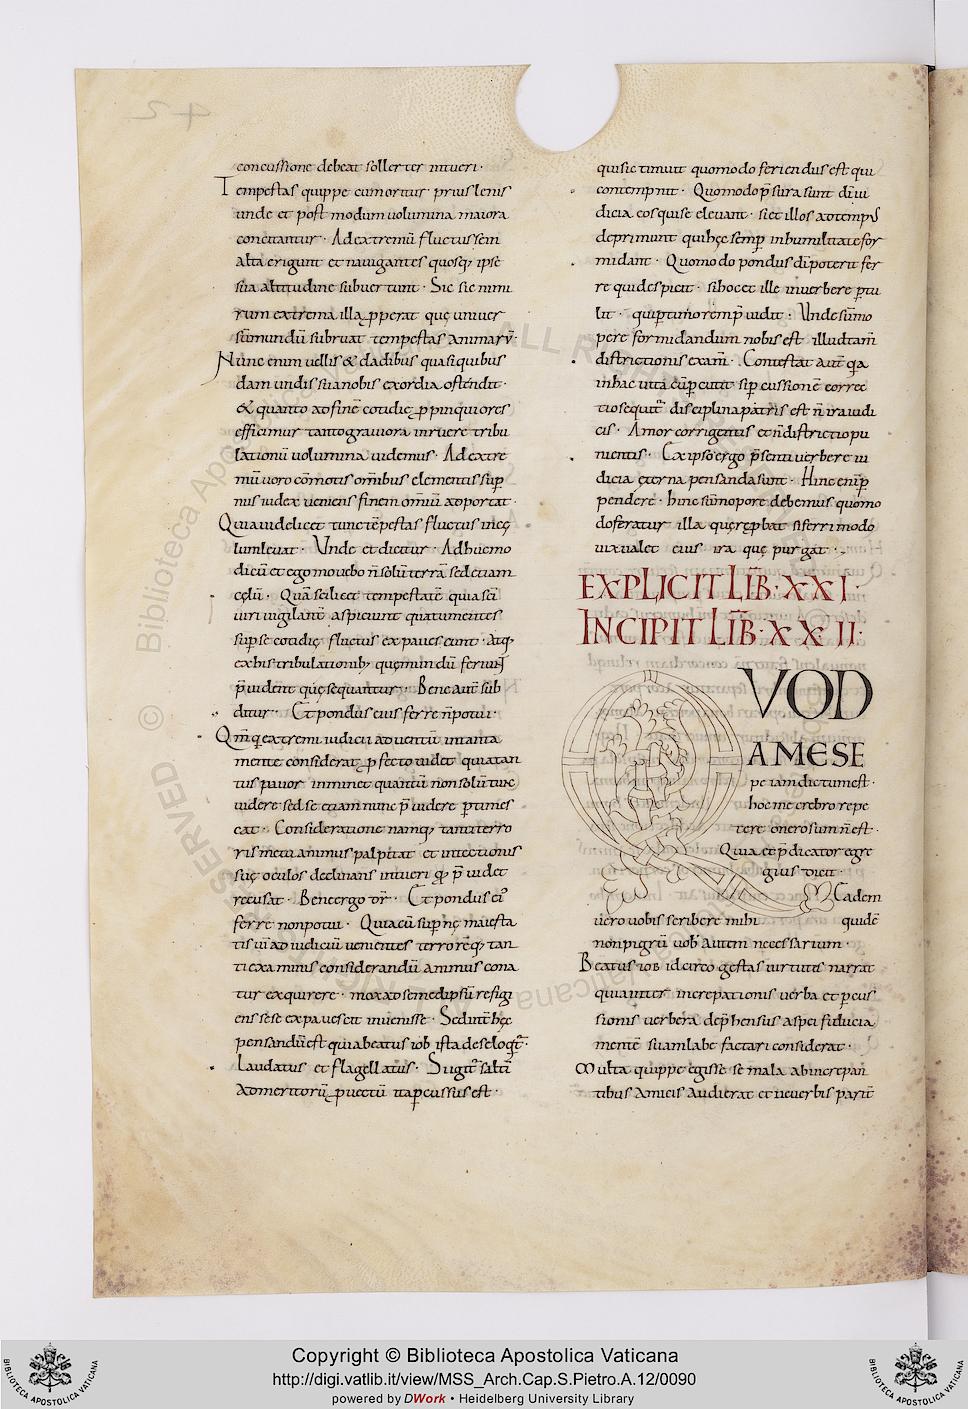 concussione debeat sollerter intueri·
Tempestas quippe cum oritur· prius lenis
unde et post modum uolumina maiora
concitantur· Ad extremū fluctus se in
alta erigunt et nauigantes quosq; ipsē
sūa altitudine subuertunt· Sic sic nimi
rum extrema illa ꝓperat quę uniuer
sū mundū subruat tempestas animarū·
Nunc enim uellis & cladibus quasi quibus
dam undis sua nobis exordia ostendit·
& quanto ad finē cotidię ꝓpinquiores
efficimur tanto grauiora inruere tribu
lationū uolumina uidemus· Ad extre
mū uoro cōmotis om̄ibus elementis suꝑ
nus iudex ueniens finem om̄iū adportat·
Quia uidelicet tunc tēpestas fluctus in cę
lum leuat· Unde et dicitur· Adhuc mo
dicū et ego mouebo n̄ solū terrā sed etiam
cęlū· Quā scilicet tempestatē quia sc̄i
uiri uigilant̄ aspiciunt quasi tumentes
suꝑ se cotidię fluctus expauescunt· Atq;
ex his tribulationib; quę mundū feriunt
p̄uident quę sequantur· Bene aut̄ sub
ditur· Et pondus eius ferre n̄ potui·
Qm̄ q extremi iudicii aduentū intenta
mente considerat ꝓfecto uidet quia tan
tus pauor imminet quantū non solū tunc
uidere sed se etiam nunc p̄uidere ꝑtimes
cat· Consideratione namq; tanti terro
ris metu animus palpitat et intentionis
suę oculos declinans intueri qđ p̄uidet
recusat· Bene ergo dr̄· Et pondus ei'
ferre non potui· Quia cū suꝑnę maiesta
tis uī ad iudiciū uenientes terrorēq; tan
ti examinis considerandū animus cona
tur exquirere· mox ad semedipsū refugi
ens sese expauescit inuenisse· Sed int̄ hęc
pensandū est quia beatus iob ista de se loqt̄·
Laudatus et flagellatus· Si igit̄ saltī
ad meritorū ꝓuectū ita ꝑcussus est·
qui sic timuit quomodo feriendus est qui
contempnit· Quomodo p̄sura sunt d̄i iu
dicia eos qui se eleuant· si et illos ad tempus
deprimunt qui hęc semꝑ in humilitate for
midant· Quomodo pondus d̄i poterit fer
re qui despicit· si hoc et ille in uerbere ꝑtu
lit· qui ꝑ timorem p̄uidit· Unde sūmo
pere formidandum nobis est illud tam̄
districtionis exam̄· Constat aut̄ qa
in hac uita cū ꝑcutit· si ꝑcussionē correc
tio sequit̄ disciplina patris est n̄ ira iudi
cis· Amor corrigentis et n̄ districtio pu
nientis· Ex ipso ergo p̄senti uerbere iu
dicia ęterna pensanda sunt· Hinc eniꝑ
pendere· hinc sūmopore debemus quomo
do feratur illa quę reꝓbat si ferri modo
uix ualet eius ira quę purgat·
EXPLICIT LIB̄·XXI·
INCIPIT LIB̄·XXII·
QVOD
IAM ESE
pe iam dictum est·
hoc me crebro repe
tere onerosum n̄ est·
Quia et p̄dicator egre
gius dicit·
Eadem
uero uobis scribere mihi quidē
non pigrū uob' autem necessarium·
Beatus iob idcirco gesta uirtutis narrat
quia inter increpationis uerba et ꝑcus
sionis uerbera dep̄hensus a spei fiducia
mentē suam labefactari considerat·
Multa quippe egisse se mala ab increpan
tibus amicis audierat et ne uerbis parit̄